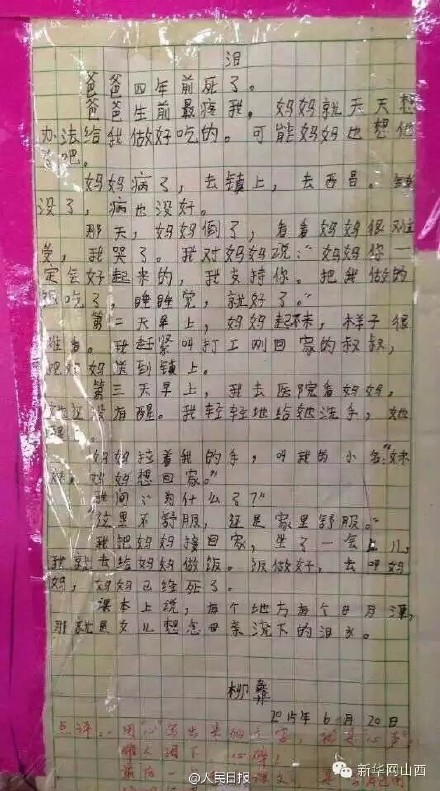 泪
爸爸四年前死了。
爸爸生前最疼我。妈妈就天天想
办法给我做好吃的。可能妈妈也想他
了吧。
妈妈病了，去镇上，去西昌。钱
没了，病也没好。
那天，妈妈倒了，看看妈妈很难
受，我哭了。我对妈妈说：“妈妈你一
定会好起来的，我支持你。把我做的
饭吃了，睡睡觉，就好了。”
第二天早上，妈妈起不来，样子很
难看。我赶紧叫打工刚回家的叔叔，
把妈妈送到镇上。
第三天早上，我去医院看妈妈，
她还没有醒。我轻轻地给她洗手，她
醒了。
妈妈拉着我的手，叫我的小名：“妹
妹，妈妈想回家。”
我问：“为什么了？”
“这里不舒服，还是家里舒服。”
我把妈妈接回家，坐了一会儿，
我就去给妈妈做饭。饭做好，去叫妈
妈，妈妈已经死了。
课本上说，有个地方有个日月潭，
那就是女儿想念母亲流下的泪水。
柳彝
2015年6月20日
点评：用心写出来的文字，就是心声，
催人泪下
@人民日报
新华网山西